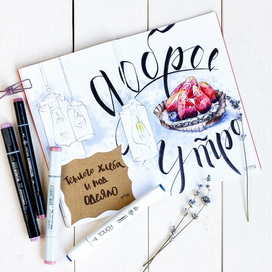 доброе
утро
Теплого хлеба
и под
одеяло
TOUCH